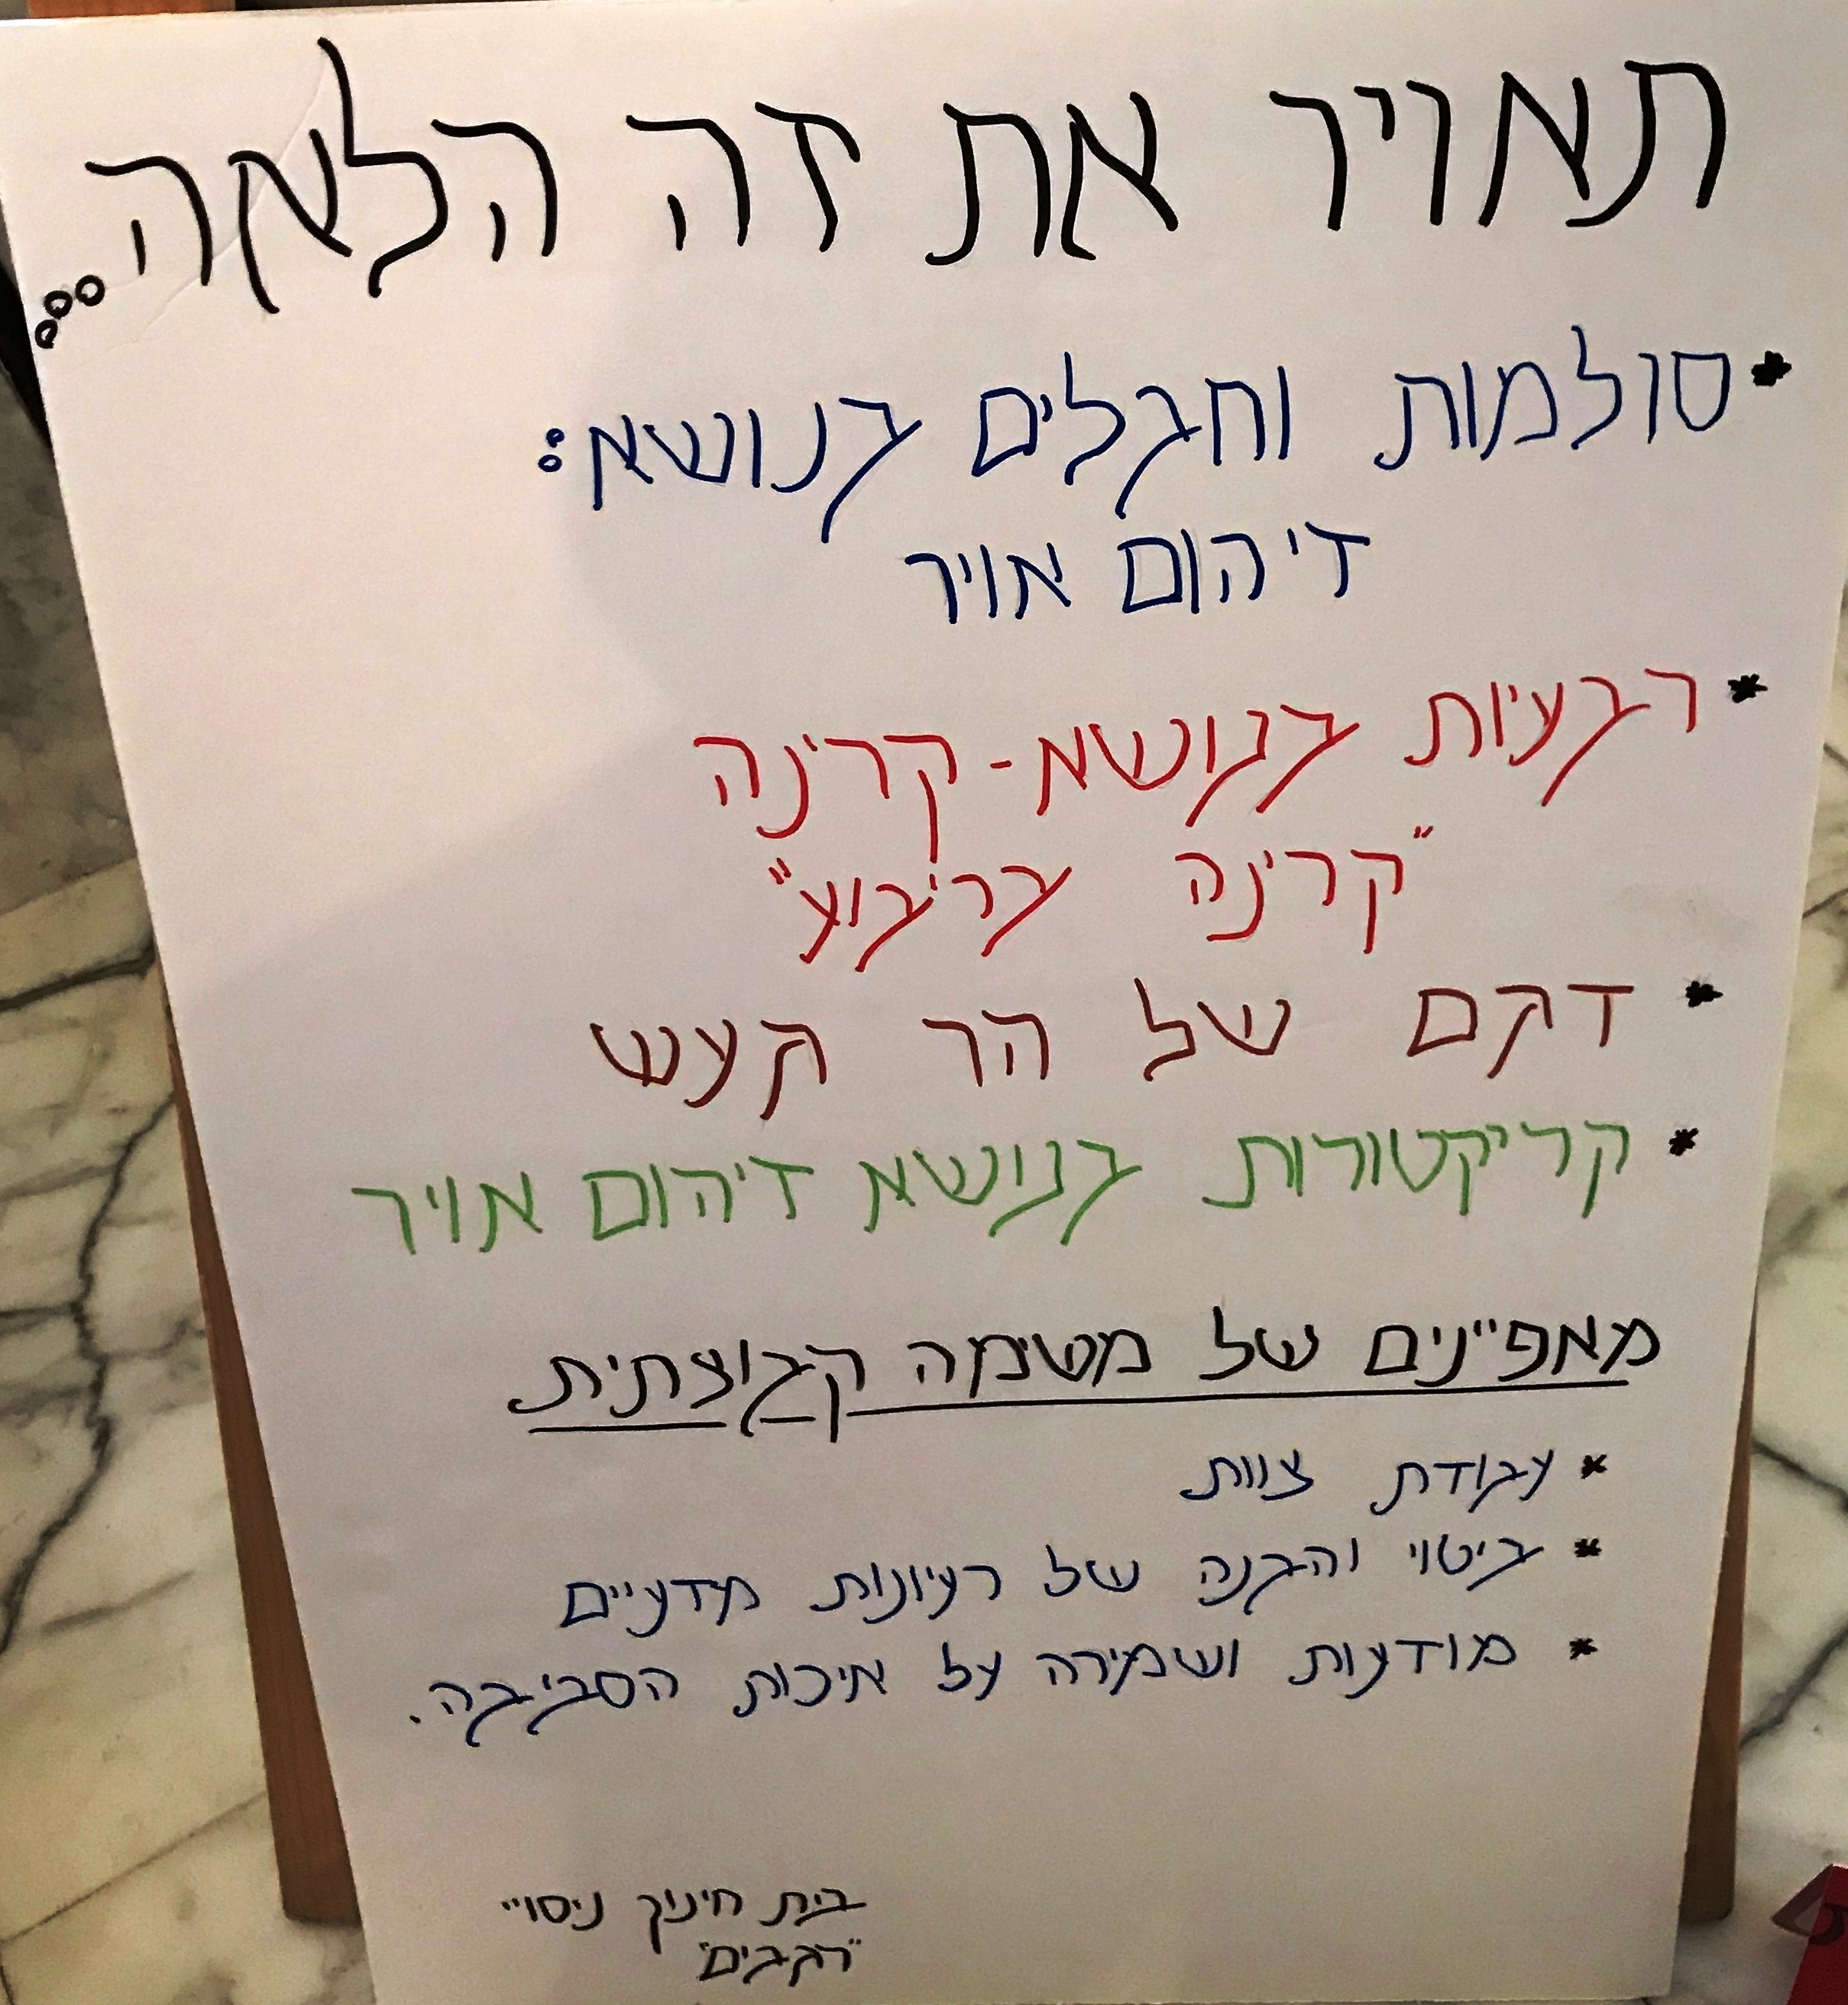 תאויר את זה הלאה...
* סולמות וחבלים בנושא:
דיהום אויר
* רבעיות בנושא - קרינה
"קרינה בריבוע"
* דגם של הר געש
* קריקטורות בנושא זיהום אויר
מאפיינים של משימה קבוצתית
* עבודת צוות
* ביטוי והבנה של רעיונות מדעיים
* מודעות ושמירה על איכות הסביבה.
בית חינוך ניסויי
"רגבים"